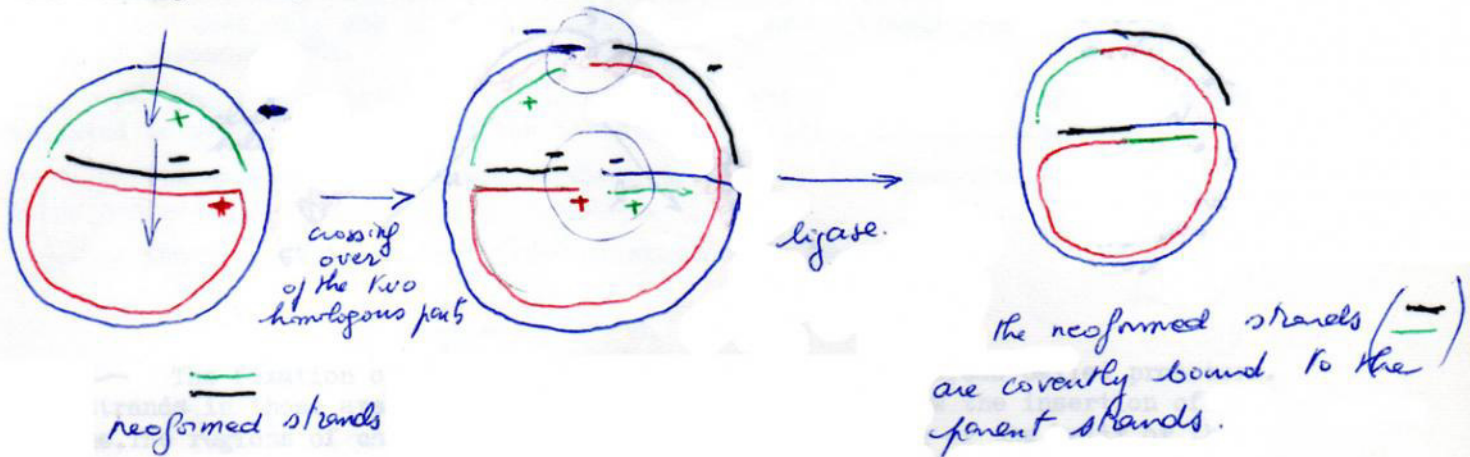 +
-
+
-
-
+
-
-
+
+
crossing
over
of the two
homologous parts
ligase.
neoformed strands
the neoformed strands ( )
are covently bound to the
parent strands.